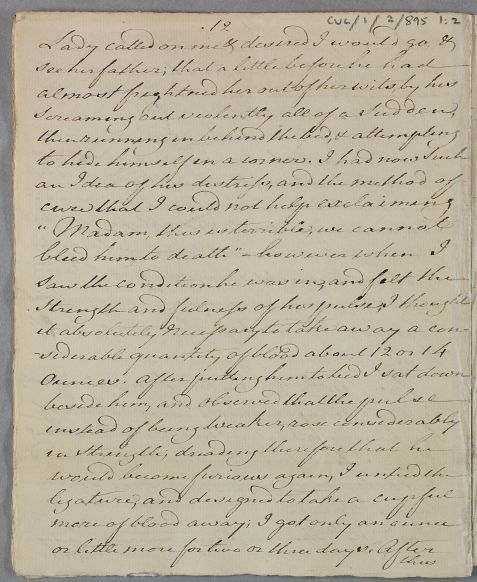 .12
CUL/1/2/895 1:2
Lady called on me & desired I would go, &
see her father; that a little before he had
almost frightned her out of her wits, by his
screaming out violently all of a sudden,
then running in behind the bed, & attempting
to hide himself in a corner. I had now such
an Idea of his distress, and the method of
cure that I could not help exclaiming
"Madam, this is terrible, we cannot
bleed him to death" - however when I
saw the condition he was in, and felt the
strength and fulness of his pulse, I thought
it absolutely necessary to take away a con-
-siderable quantity of blood about 12 or 14
ounces. After putting him to bed I sat down
beside him, and observed that the pulse
instead of being weaker, rose considerably
in strength; dreading therefore that he
would become furious again, I untied the
ligature, and designed to take a cupful
more of blood away; I got only an ounce
or little more for two or three days. After
this